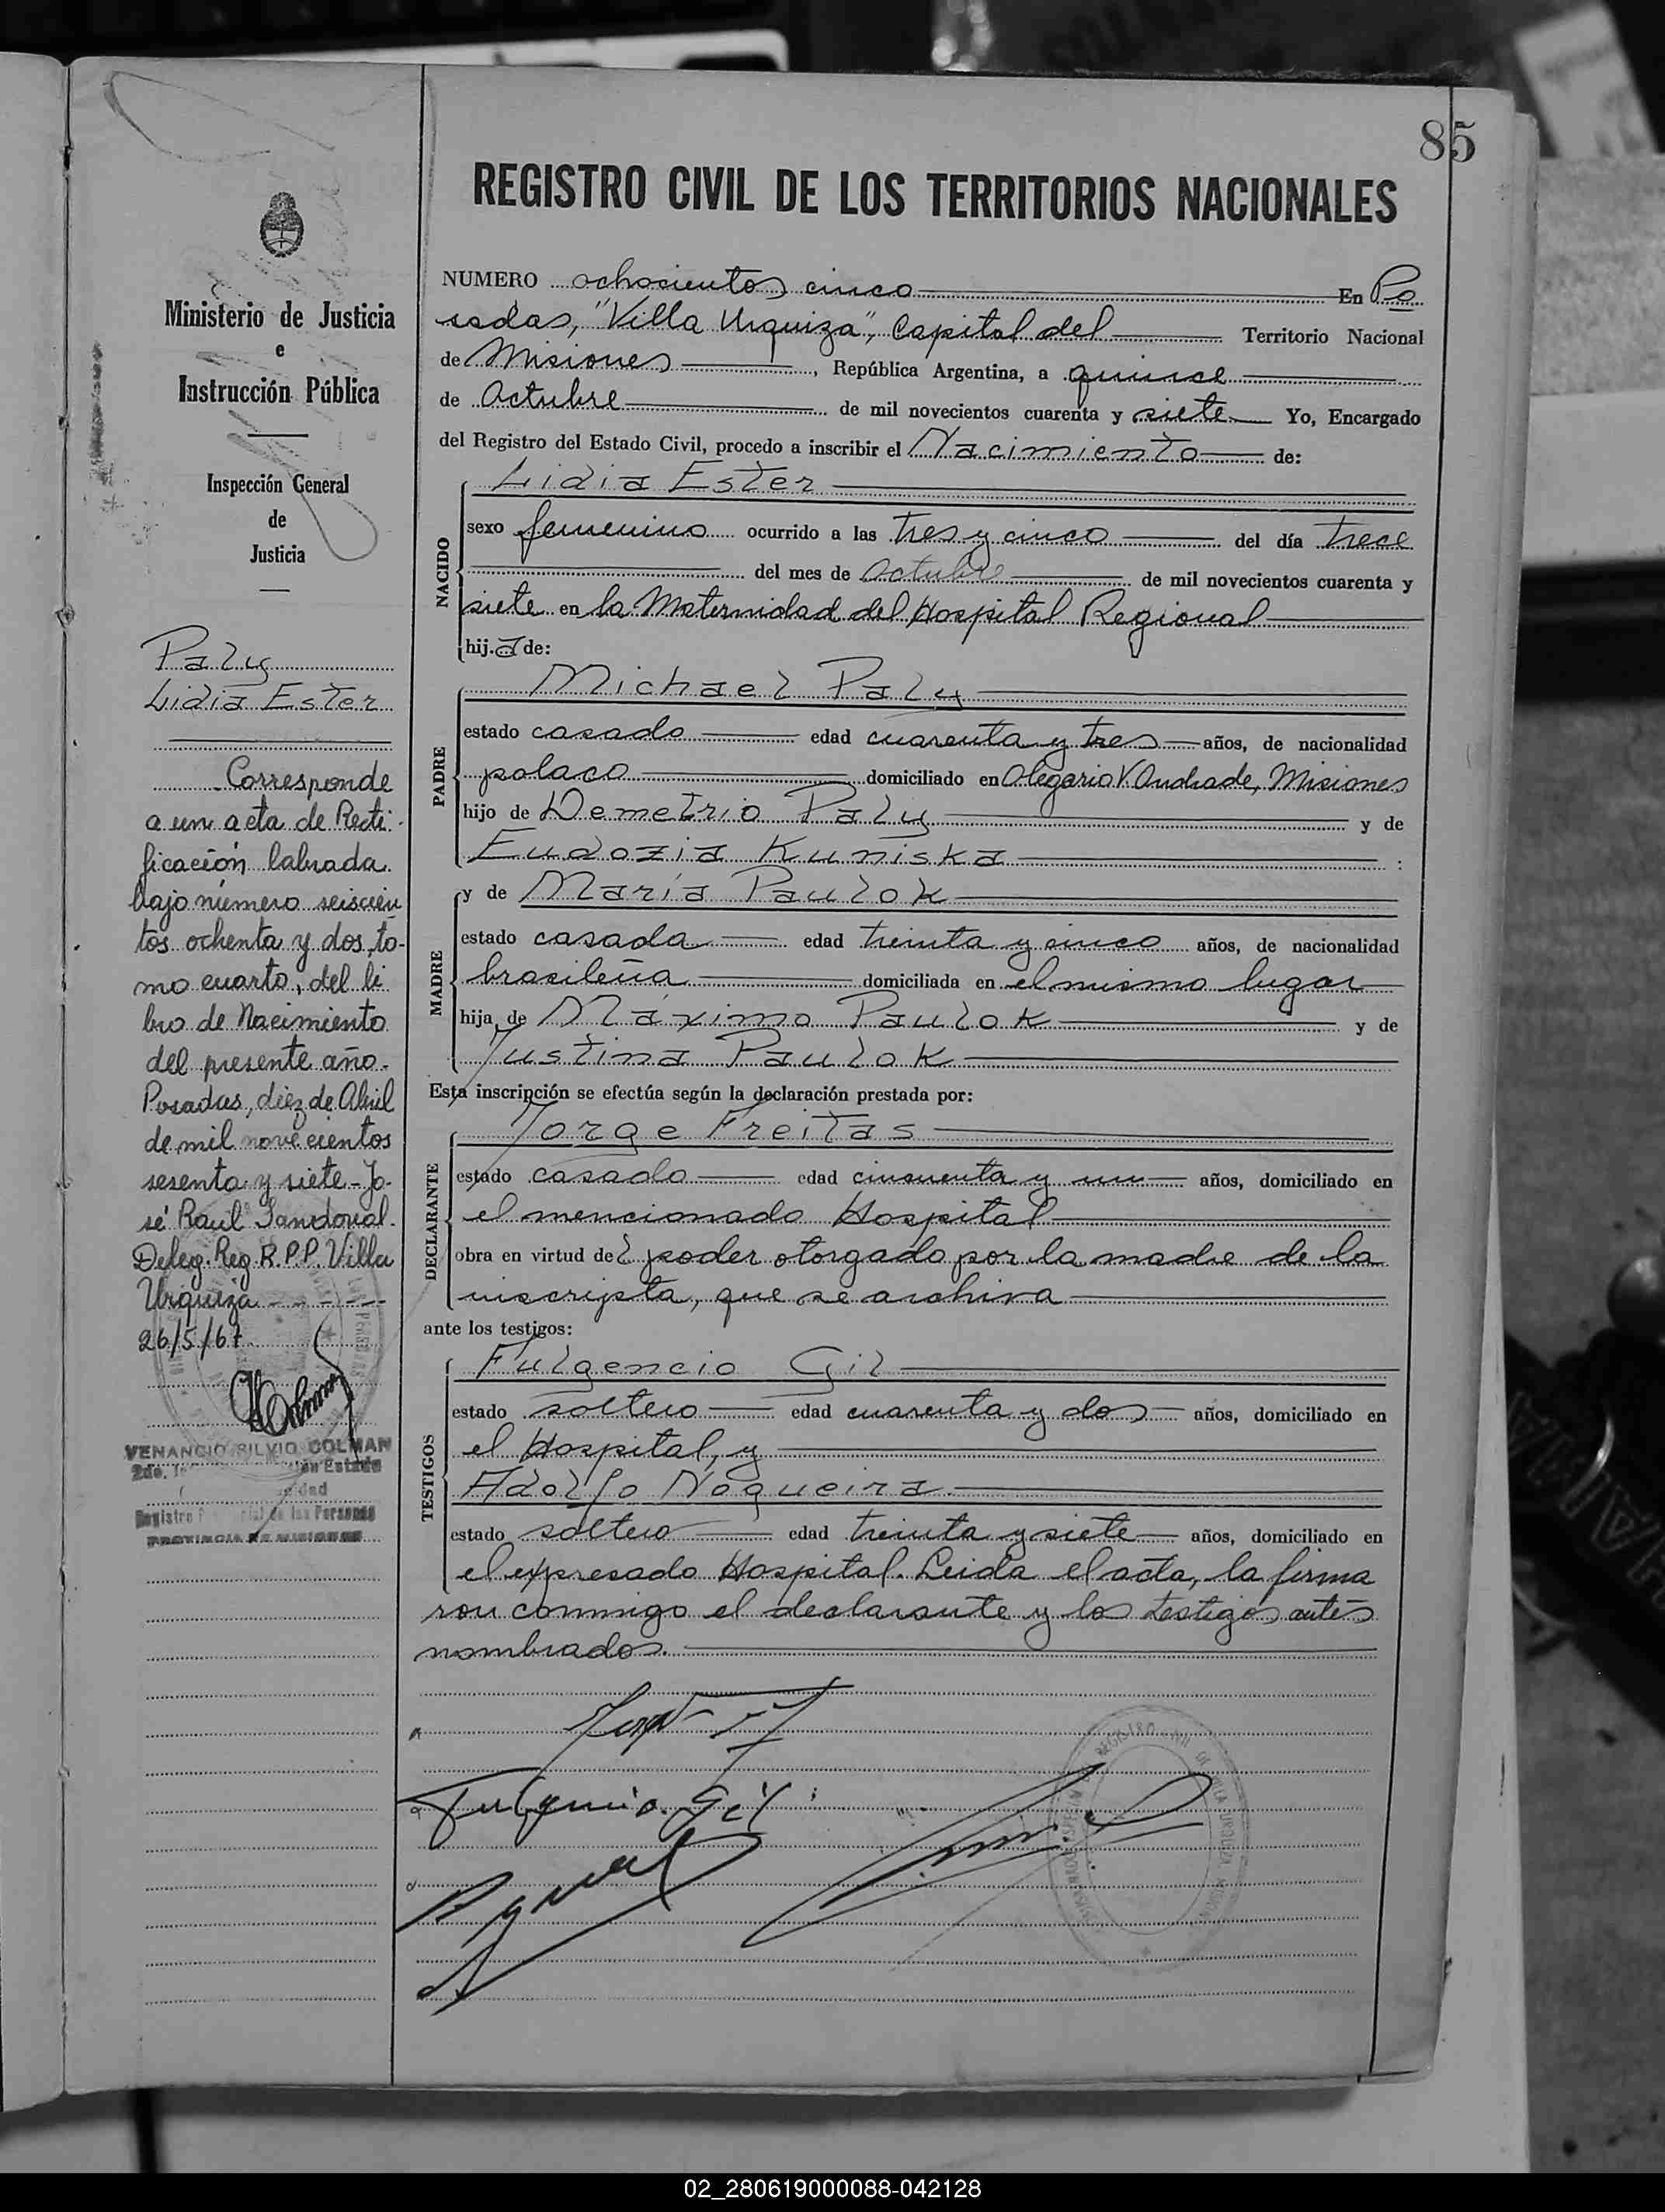 85
REGISTRO CIVIL DE LOS TERRITORIOS NACIONALES
Ministerio de Justicia
e
Instrucción Pública
Inspección General
de
Justicia
Paly
Lidia Ester
Corresponde
a un acta de Recti-
ficación labrada
bajo número seiscien
tos ochenta y dos, to-
mo cuarto, del li
bro de Nacimiento
del presente año.
Posadas, diez de Abril
de mil novecientos
sesenta y siete - Jo-
sé Raul Sandoval.
Deleg. Reg. R.P.P. Villa
Urquiza - - - - -
26/5/67
VENANCIO SILVIO COLMAN
2do.
Registro de las Personas
PROVINCIA DE MISIONES
NUMERO ochocientos cinco En Po
sadas, "Villa Urquiza", Capital del Territorio Nacional
de Misiones, República Argentina, a quince
de Octubre de mil novecientos cuarenta y siete Yo, Encargado
del Registro del Estado Civil, procedo a inscribir el Nacimiento de:
NACIDO
Lidia Ester
sexo femenino ocurrido a las tres y cinco del día trece
del mes de Octubre de mil novecientos cuarenta y
siete en la Maternidad del Hospital Regional
hij a de:
PADRE
Michael Paly
estado casado edad cuarenta y tres años, de nacionalidad
polaco domiciliado en Olegario V. Andrade, Misiones
hijo de Demetrio Paly y de
Eudozia Kuniska :
MADRE
y de María Paulok
estado casada edad treinta y cinco años, de nacionalidad
brasileña domiciliada en el mismo lugar
hija de Máximo Paulok y de
Justina Paulok
Esta inscripción se efectúa según la declaración prestada por:
DECLARANTE
Jorge Freitas
estado casado edad cincuenta y un años, domiciliado en
el mencionado Hospital
obra en virtud del poder otorgado por la madre de la
inscripta, que se archiva
ante los testigos:
TESTIGOS
Fulgencio Gil
estado soltero edad cuarenta y dos años, domiciliado en
el Hospital, y
Adolfo Nogueira
estado soltero edad treinta y siete años, domiciliado en
el expresado Hospital. Leida el acta, la firma
ron conmigo el declarante y los testigos antes
nombrados.
Fulgencio Gil
02_280619000088-042128